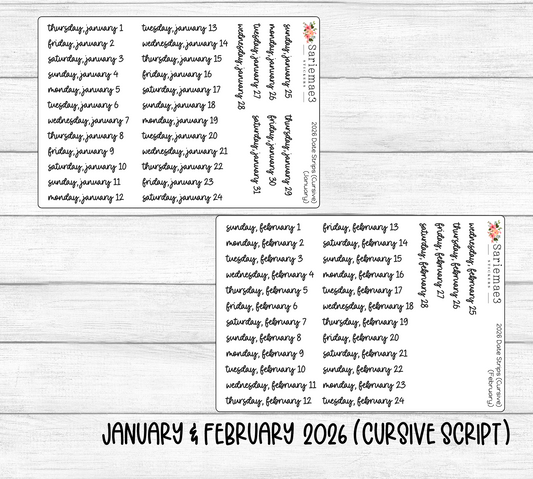 thursday, january 1
friday, january 2
saturday, january 3
sunday, january 4
monday, january 5
tuesday, january 6
wednesday, january 7
thursday, january 8
friday, january 9
saturday, january 10
sunday, january 11
monday, january 12
tuesday, january 13
wednesday, january 14
thursday, january 15
friday, january 16
saturday, january 17
sunday, january 18
monday, january 19
tuesday, january 20
wednesday, january 21
thursday, january 22
friday, january 23
saturday, january 24
sunday, january 25
monday, january 26
tuesday, january 27
wednesday, january 28
thursday, january 29
friday, january 30
saturday, january 31
Sariemae3
STICKERS
2026 Date Strips (Cursive)
(January)
sunday, february 1
monday, february 2
tuesday, february 3
wednesday, february 4
thursday, february 5
friday, february 6
saturday, february 7
sunday, february 8
monday, february 9
tuesday, february 10
wednesday, february 11
thursday, february 12
friday, february 13
saturday, february 14
sunday, february 15
monday, february 16
tuesday, february 17
wednesday, february 18
thursday, february 19
friday, february 20
saturday, february 21
sunday, february 22
monday, february 23
tuesday, february 24
wednesday, february 25
thursday, february 26
friday, february 27
saturday, february 28
Sariemae3
STICKERS
2026 Date Strips (Cursive)
(February)
JANUARY & FEBRUARY 2026 (CURSIVE SCRIPT)